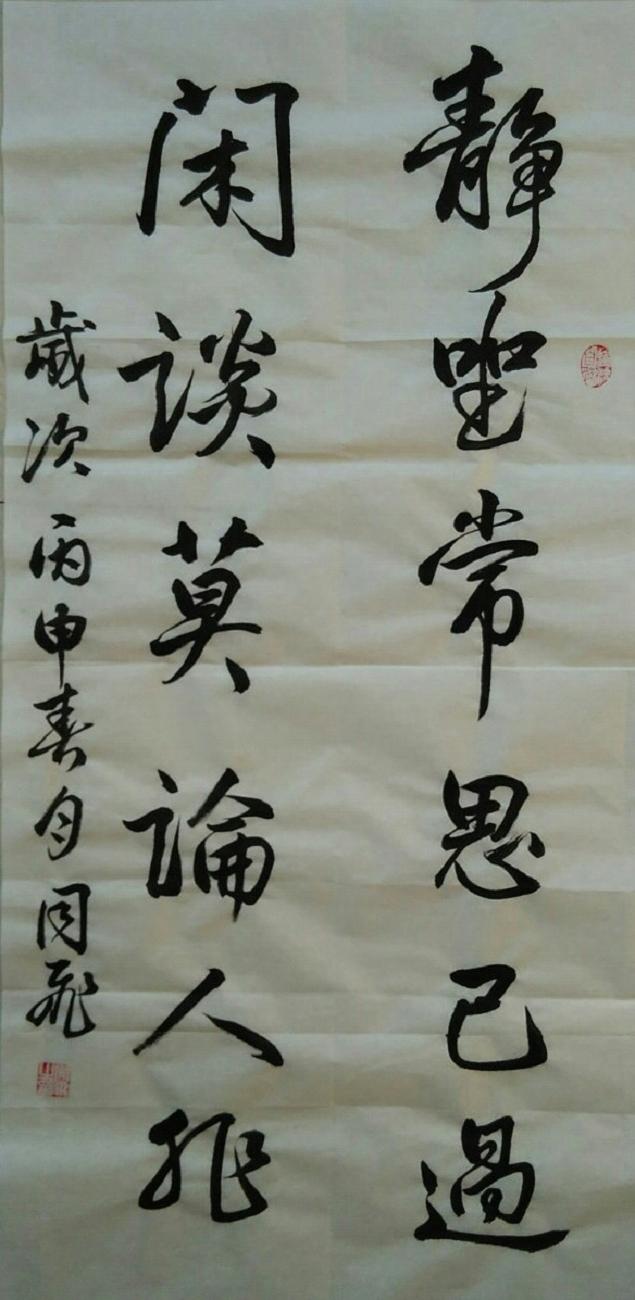 靜坐常思己過
閑談莫論人非
歲次丙申春月周飛